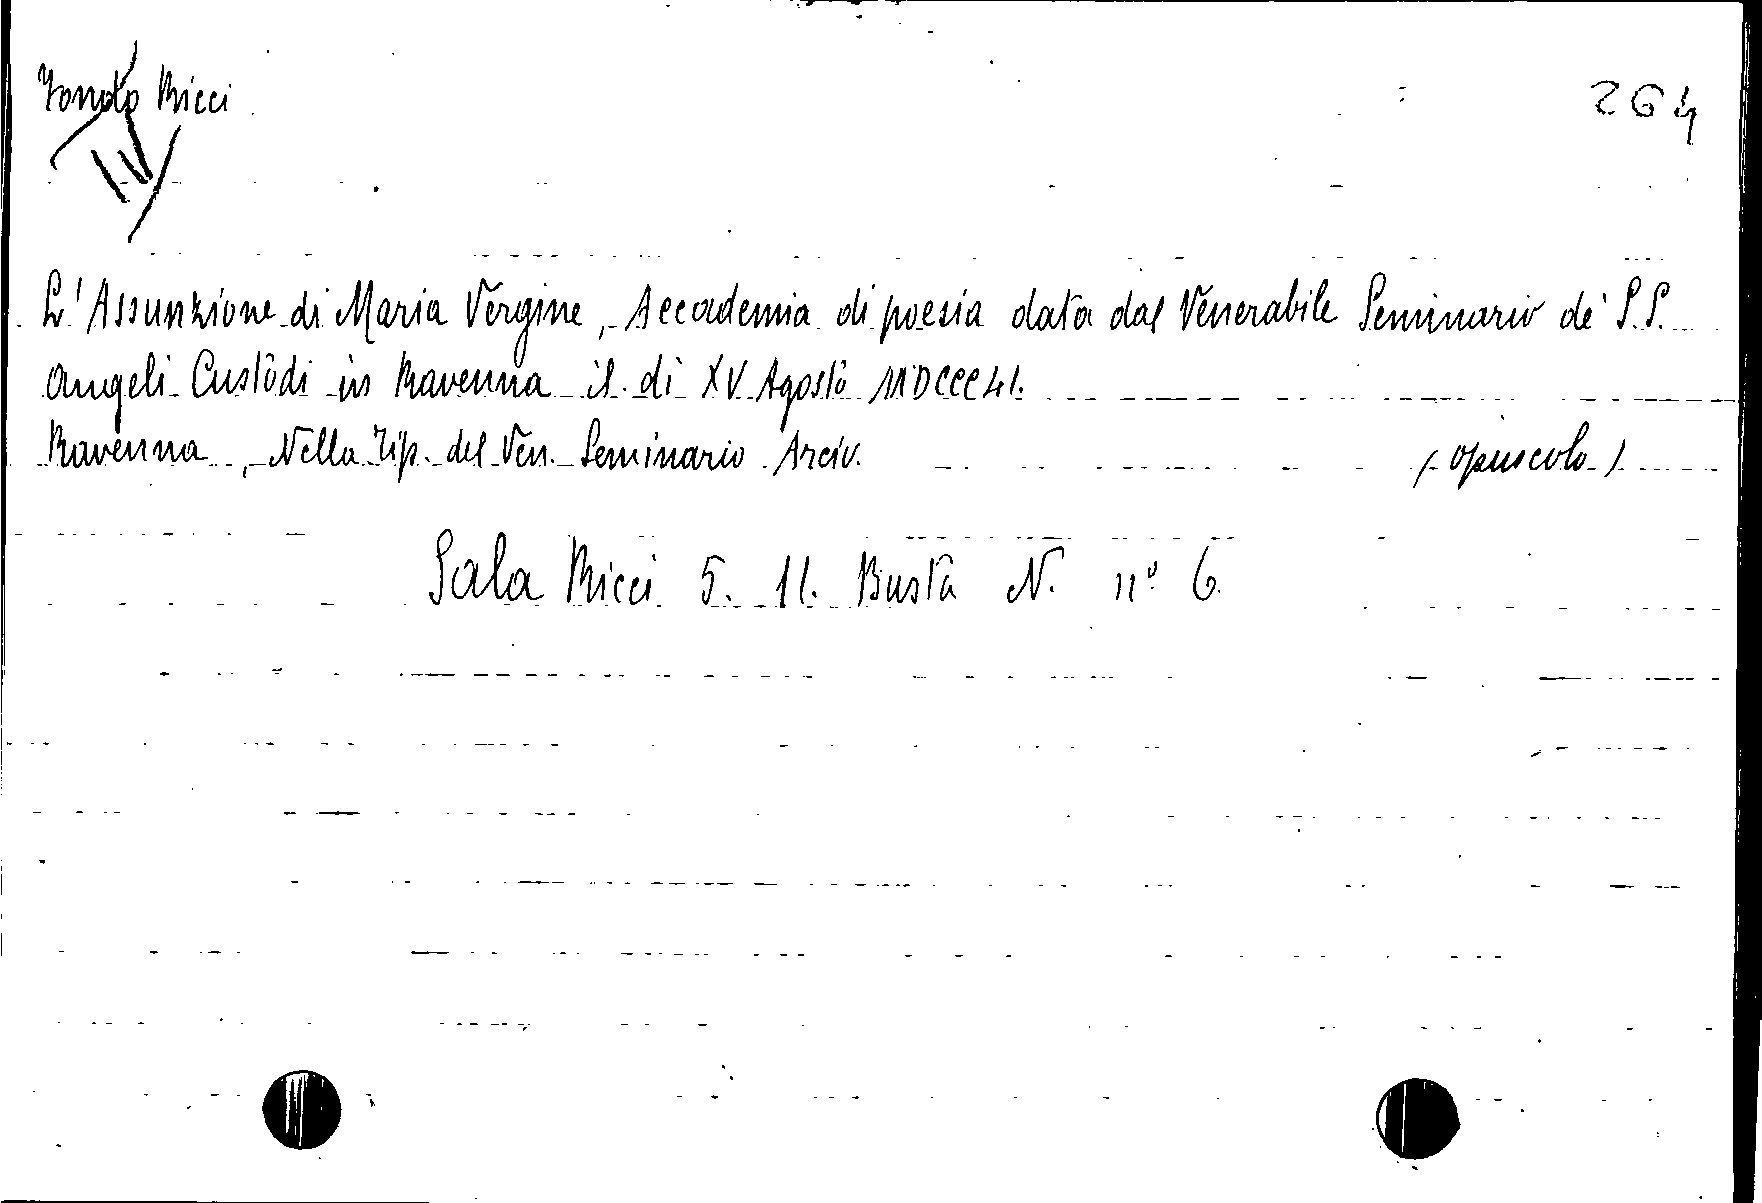 Fondo Ricci
264
IV
L'Assunzione di Maria Vergine, Accademia di poesia data dal Venerabile Seminario de' S.S.
Angeli Custodi in Ravenna il dì XV Agosto MDCCC41.
Ravenna, Nella Tip. del Ven. Seminario Arciv. (opuscolo)
Sala Ricci 5. 11. Busta N. nº 6